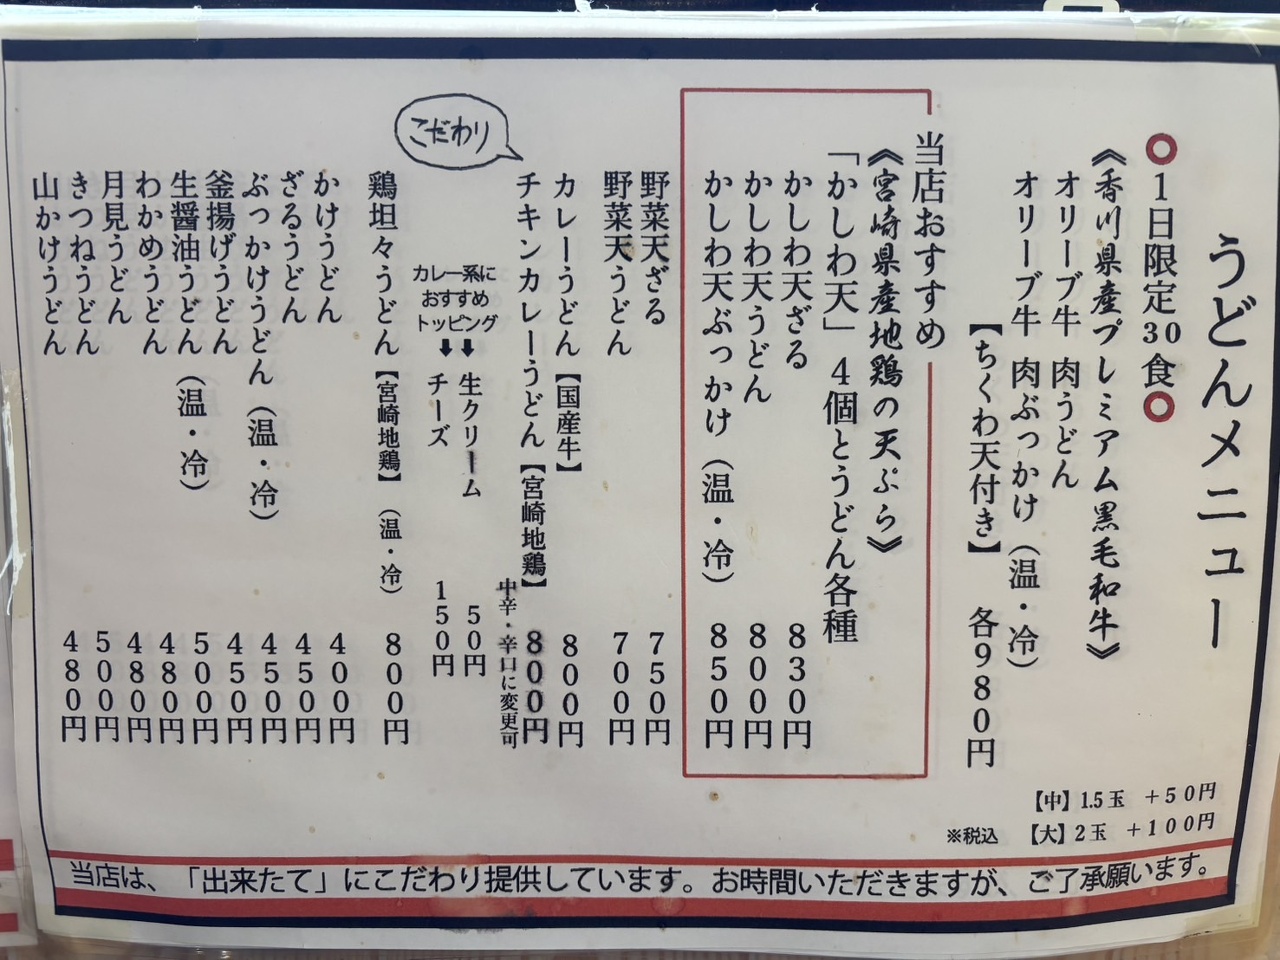 うどんメニュー
〇1日限定30食〇
《香川県産プレミアム黒毛和牛》
オリーブ牛 肉うどん
オリーブ牛 肉ぶっかけ（温・冷）
【ちくわ天付き】 各980円
当店おすすめ
《宮崎県産地鶏の天ぷら》
「かしわ天」4個とうどん各種
かしわ天ざる 830円
かしわ天うどん 800円
かしわ天ぶっかけ（温・冷） 850円
野菜天ざる 750円
野菜天うどん 700円
カレーうどん【国産牛】 800円
こだわり
チキンカレーうどん【宮崎地鶏】 800円
中辛・辛口に変更可
カレー系に
おすすめ
トッピング
⬇生クリーム 50円
⬇チーズ 150円
鶏坦々うどん【宮崎地鶏】（温・冷） 800円
かけうどん 400円
ざるうどん 450円
ぶっかけうどん（温・冷） 450円
釜揚げうどん 450円
生醤油うどん（温・冷） 500円
わかめうどん 480円
月見うどん 480円
きつねうどん 500円
山かけうどん 480円
【中】1.5玉 +50円
※税込 【大】2玉 +100円
当店は、「出来たて」にこだわり提供しています。お時間いただきますが、ご了承願います。